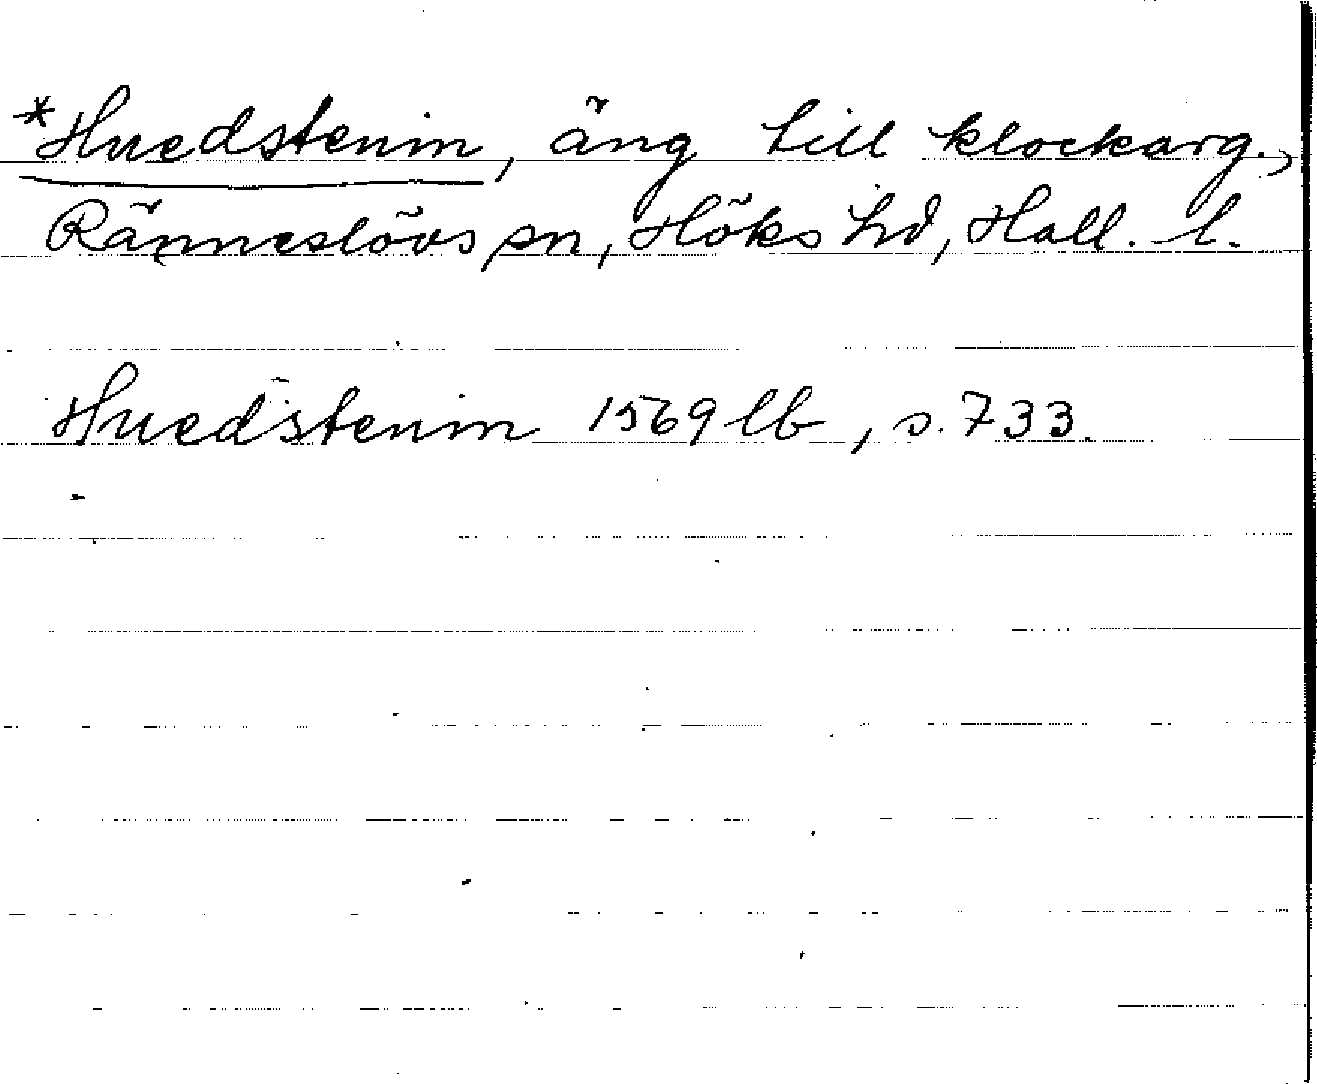 *Huedstenim, äng till klockarg.,
Ränneslövs sn, Höks hd, Hall. l.
Huedstenim 1569 lb, s. 733.